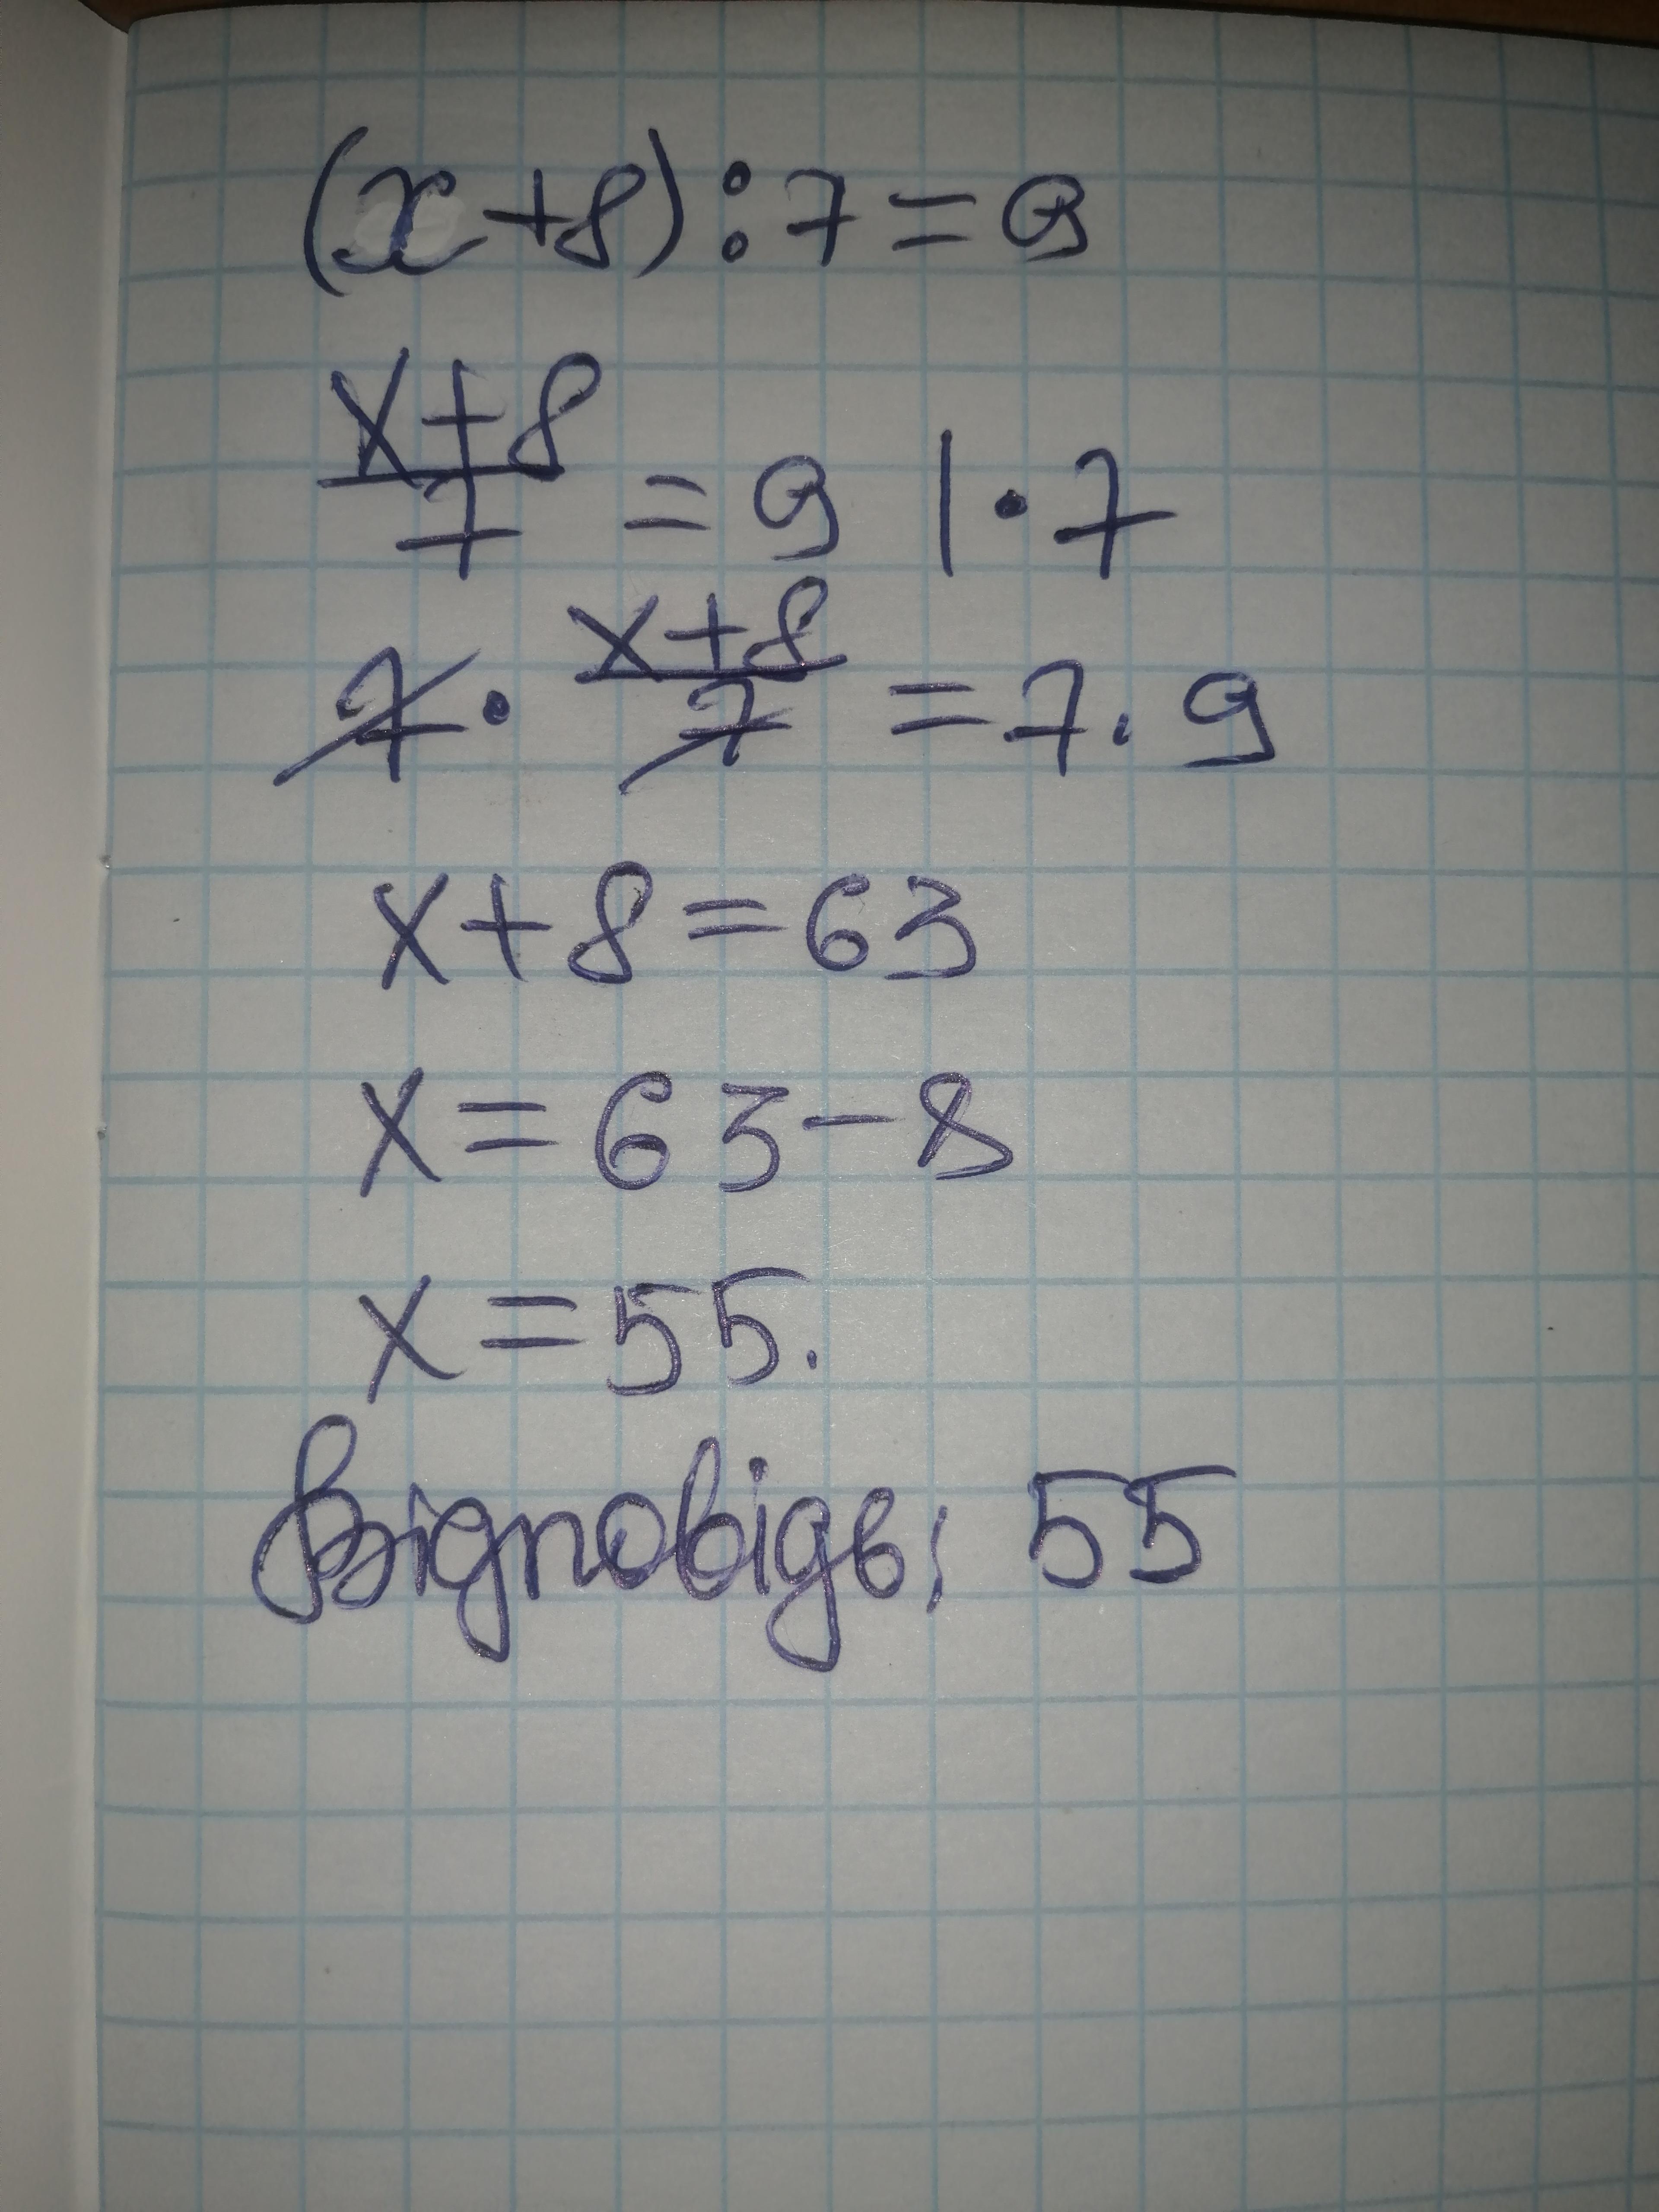 (x+8):7=9
x+8/7 = 9 |·7
7· x+8/7 =7·9
x+8=63
x=63-8
x=55.
Відповідь: 55